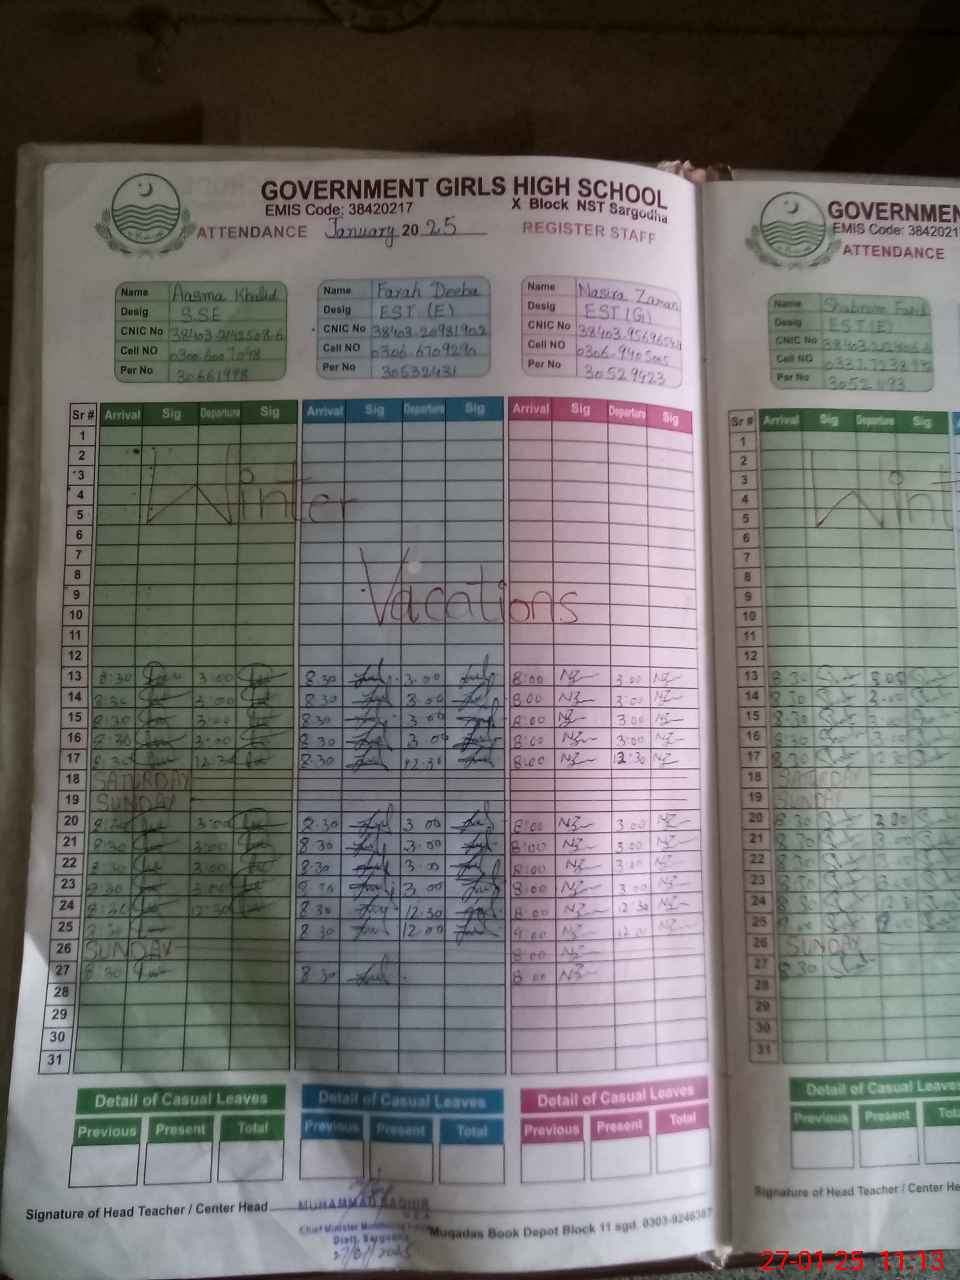 GOVERNMENT GIRLS HIGH SCHOOL
EMIS Code: 38420217 X Block NST Sargodha
ATTENDANCE January 2025 REGISTER STAFF
Name Aasma Khalid
Desig SSE
CNIC No
Cell NO
Per No 30661998
Name Farah Deeba
Desig EST (E)
CNIC No 38403.20931902
Cell NO 0306.6709290
Per No 30532431
Name Nasira Zaman
Desig EST (G)
CNIC No
Cell NO
Per No 30529423
Sr # Arrival Sig Departure Sig Arrival Sig Departure Sig Arrival Sig Departure Sig
1
2
3
4
5
Winter
6
7
8
9
10
Vacations
11
12
13 8:30 3:00 8.30 3.00 8:00 NZ 3:00 NZ
14 8:30 3:00 8.30 3.00 8:00 NZ 3:00 NZ
15 8:30 3:00 8.30 3.00 8:00 NZ 3:00 NZ
16 8:30 3:00 8.30 3.00 8:00 NZ 3:00 NZ
17 8:30 12:30 8.30 12.30 8:00 NZ 12:30 NZ
18 SATURDAY
19 SUNDAY
20 8:30 3:00 8.30 3.00 8:00 NZ 3:00 NZ
21 8:30 3:00 8.30 3.00 8:00 NZ 3:00 NZ
22 8:30 3:00 8.30 3.00 8:00 NZ 3:00 NZ
23 8:30 3:00 8.30 3.00 8:00 NZ 3:00 NZ
24 8:30 12:30 8.30 12.30 8:00 NZ 12:30 NZ
25 8.30 12.00 NZ 12.00 NZ
26 SUNDAY 8:00 NZ
27 8.30 8.30 8:00 NZ
28
29
30
31
Detail of Casual Leaves Detail of Casual Leaves Detail of Casual Leaves
Previous Present Total Previous Present Total Previous Present Total
Signature of Head Teacher / Center Head
MUHAMMAD
Chief Minister
Distt. Sargodha
27/01/2025
Muqadas Book Depot Block 11 sgd. 0303-9246387
GOVERNMEN
EMIS Code: 3842021
ATTENDANCE
Name Shabnum
Desig EST (E)
CNIC No
Cell NO
Per No
Sr # Arrival Sig Departure Sig
1
2
3
4
5
Wint
6
7
8
9
10
11
12
13 8.30 3.00
14 8.30 3.00
15 8.30 3.00
16 8.30 3.00
17 8.30
18 SATURDAY
19 SUNDAY
20 8.30 3.00
21 8.30
22 8.30
23 8.30
24 8.30
25 8.30
26 SUNDAY
27 8.30
28
29
30
31
Detail of Casual Leaves
Previous Present Tota
Signature of Head Teacher / Center He
27-01-25 11:13